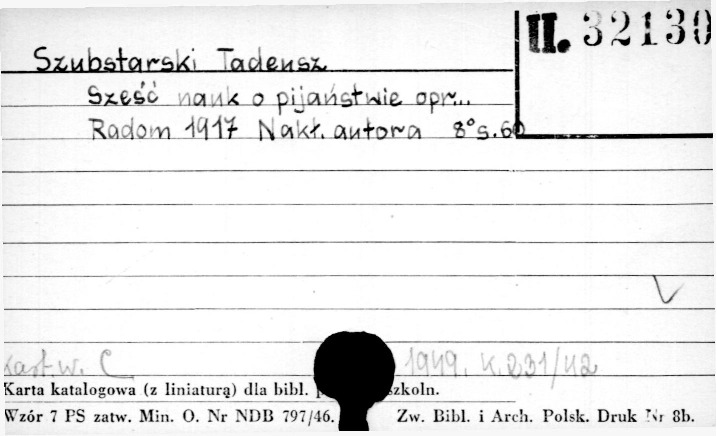 II. 32130
Szubstarski Tadeusz
Sześć nauk o pijaństwie opr...
Radom 1917 Nakł. autora 8° s. 60
Kast. w. C 1949. K. 231/42
Karta katalogowa (z liniaturą) dla bibl. szkoln.
Wzór 7 PS zatw. Min. O. Nr NDB 797/46. Zw. Bibl. i Arch. Polsk. Druk Nr 8b.